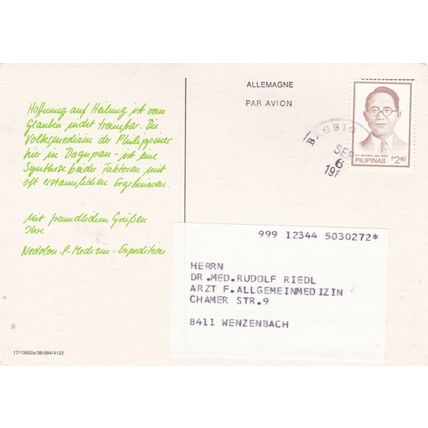 Hoffnung auf Heilung ist vom
Glauben nicht trennbar. Die
Volksmedizin der Philippinen
hier in Dagupan - ist eine
Synthese beider Faktoren mit
oft erstaunlichen Ergebnissen.
Mit freundlichen Grüßen
Ihre
Nedolon-P. Medizin-Expedition
17/13952a/38/684/4122
ALLEMAGNE
PAR AVION
BAGUIO
SEP
6
PILIPINAS
P2.40
999 12344 5030272*
HERRN
DR.MED.RUDOLF RIEDL
ARZT F.ALLGEMEINMEDIZIN
CHAMER STR.9
8411 WENZENBACH